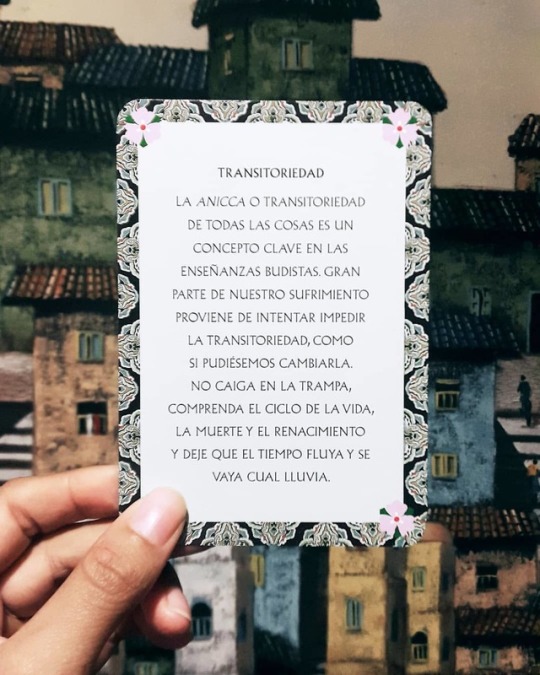 TRANSITORIEDAD
LA ANICCA O TRANSITORIEDAD
DE TODAS LAS COSAS ES UN
CONCEPTO CLAVE EN LAS
ENSEÑANZAS BUDISTAS. GRAN
PARTE DE NUESTRO SUFRIMIENTO
PROVIENE DE INTENTAR IMPEDIR
LA TRANSITORIEDAD, COMO
SI PUDIÉSEMOS CAMBIARLA.
NO CAIGA EN LA TRAMPA,
COMPRENDA EL CICLO DE LA VIDA,
LA MUERTE Y EL RENACIMIENTO
Y DEJE QUE EL TIEMPO FLUYA Y SE
VAYA CUAL LLUVIA.